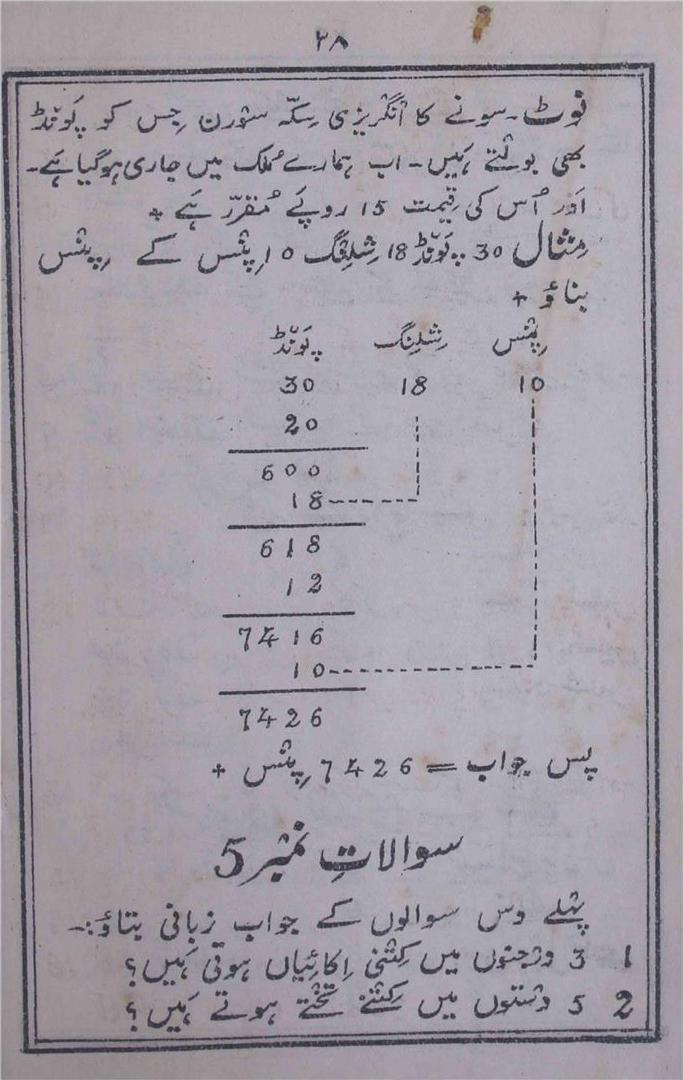 ۲۸
نوٹ۔ سونے کا انگریزی سِکّہ سَوَرن جِس کو پَونڈ
بھی بولتے ہَیں۔ اب ہمارے مُلک میں جاری ہو گیا ہَے۔
اَور اُس کی قِیمت 15 روپَے مُقرّر ہَے +
مِثال 30 پَونڈ 18 شِلِنگ 10 پِنْس کے پِنْس
بناؤ +
پَونڈ شِلِنگ پِنْس
30 18 10
20
600
18
618
12
7416
10
7426
پس جواب = 7426 پِنْس +
سوالاتِ نمبر 5
پہلے دس سوالوں کے جواب زبانی بتاؤ:۔
1 3 درجنوں میں کِتنی اِکائِیاں ہوتی ہَیں؟
2 5 دستوں میں کِتنے تختے ہوتے ہَیں؟